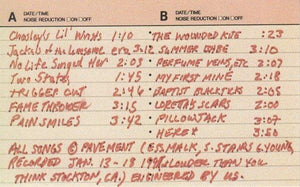 A DATE/TIME
NOISE REDUCTION ☐ON ☐OFF
B DATE/TIME
NOISE REDUCTION ☐ON ☐OFF
Chesley's Lil' Wrists 1:10
Jackals of the Lonesome era 3:12
No Life Singed Her 2:05
Two States 1:45
TRIGGER CUT 2:46
FAME THROWER 3:15
PAIN SMILES 3:42
THE WOUNDED KITE :23
SUMMER BABE 3:10
PERFUME VENTS, ETC 3:07
MY FIRST MINE 2:18
BAPTIST BLACKTICKS 2:05
LORETTA'S SCARS 2:00
PILLOWJACK 3:07
HERE* 3:50
ALL SONGS © PAVEMENT (ESS.MALK, S.STAIRS G.YOUNG,
RECORDED JAN. 13-18 LOUDER THAN YOU
THINK STOCKTON, CA.) ENGINEERED BY US.